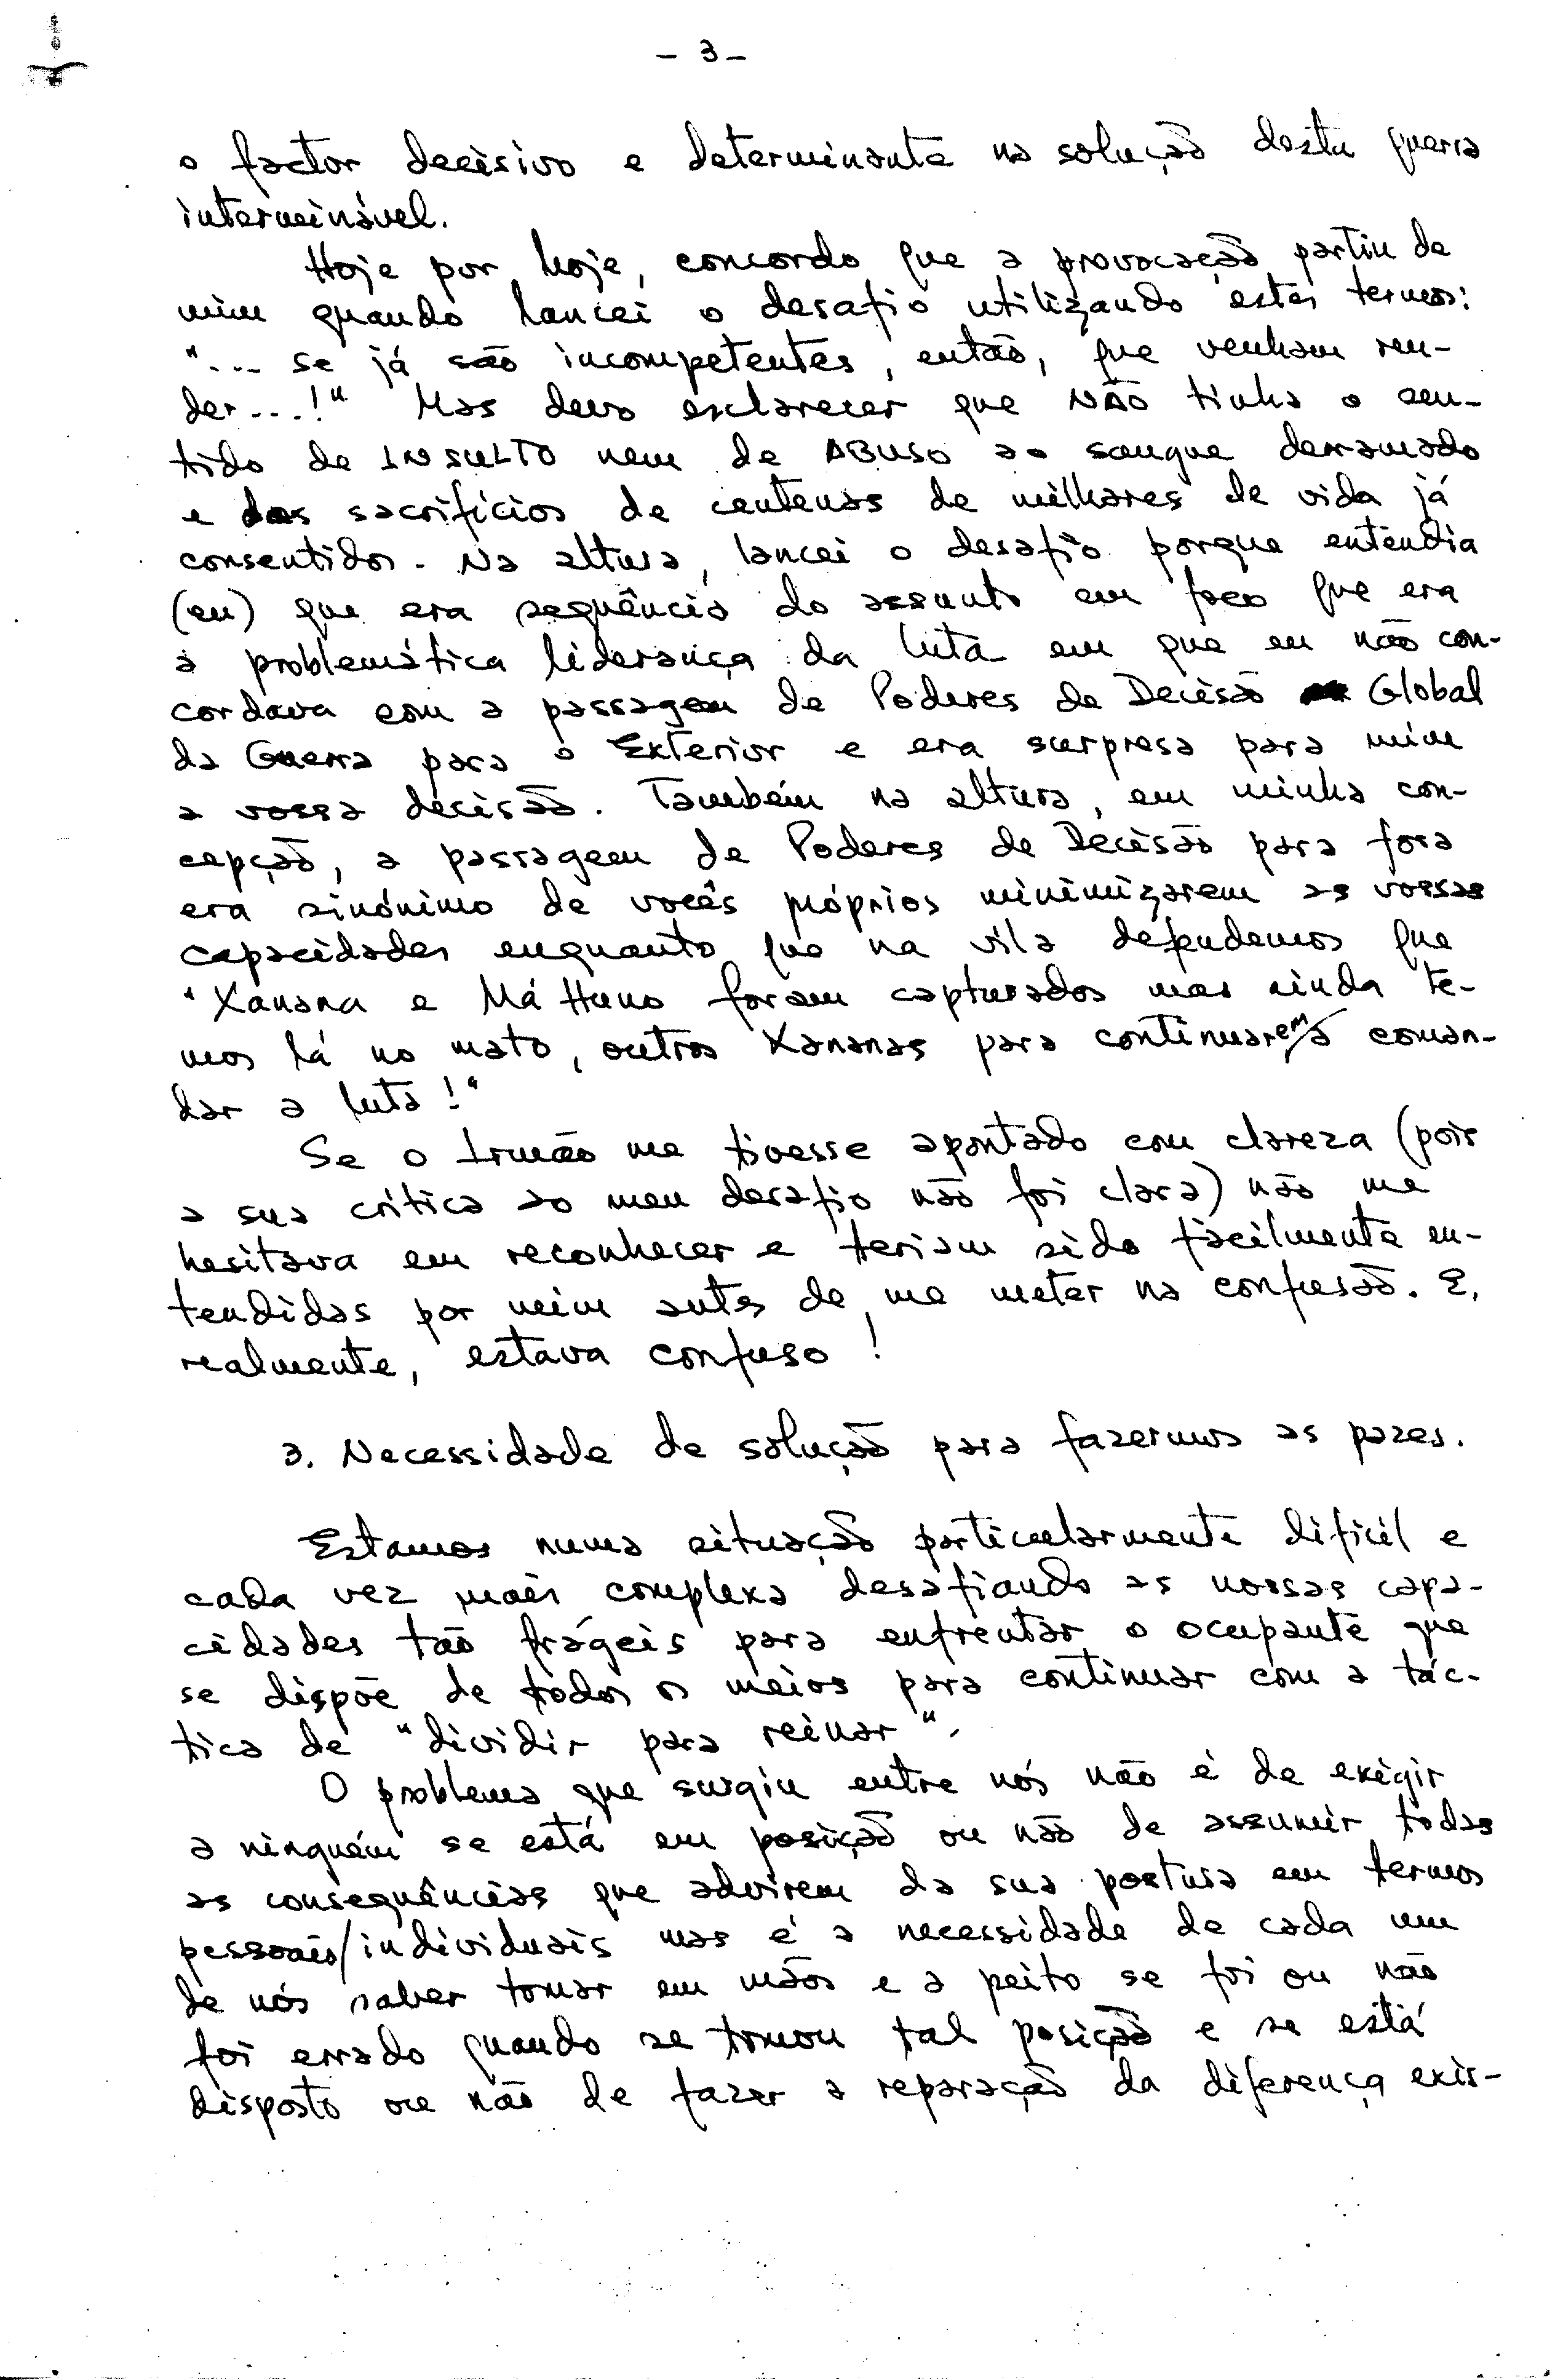 - 3 -
o factor decisivo e determinante na solução desta guerra
interminável.
Hoje por hoje, concordo que a provocação partiu de
mim quando lancei o desafio utilizando estes termos:
"... se já são incompetentes, então, que venham ren-
der...!" Mas devo esclarecer que NÃO tinha o sen-
tido de INSULTO nem de ABUSO ao sangue derramado
e dos sacrifícios de centenas de milhares de vida já
consentidos. Na altura, lancei o desafio porque entendia
(eu) que era sequência do assunto em foco que era
a problemática liderança da luta em que eu não con-
cordava com a passagem de Poderes de Decisão Global
da Guerra para o Exterior e era surpresa para mim
a vossa decisão. Também na altura, em minha con-
cepção, a passagem de Poderes de Decisão para fora
era sinónimo de vocês próprios minimizarem as vossas
capacidades enquanto que na vila defendemos que
"Xanana e Má Huno foram capturados mas ainda te-
mos lá no mato, outros Xananas para continuarem a coman-
dar a luta!"
Se o Irmão me tivesse apontado com clareza (pois
a sua crítica ao meu desafio não foi clara) não me
hesitava em reconhecer e teriam sido facilmente en-
tendidas por mim antes de me meter na confusão. E,
realmente, estava confuso!
3. Necessidade de solução para fazermos as pazes.
Estamos numa situação particularmente difícil e
cada vez mais complexa desafiando as nossas capa-
cidades tão frágeis para enfrentar o ocupante que
se dispõe de todos os meios para continuar com a tác-
tica de "dividir para reinar".
O problema que surgiu entre nós não é de exigir
a ninguém se está em posição ou não de assumir todas
as consequências que advirem da sua postura em termos
pessoais/individuais mas é a necessidade de cada um
de nós saber tomar em mãos e a peito se foi ou não
foi errado quando se tomou tal posição e se está
disposto ou não de fazer a reparação da diferença exis-